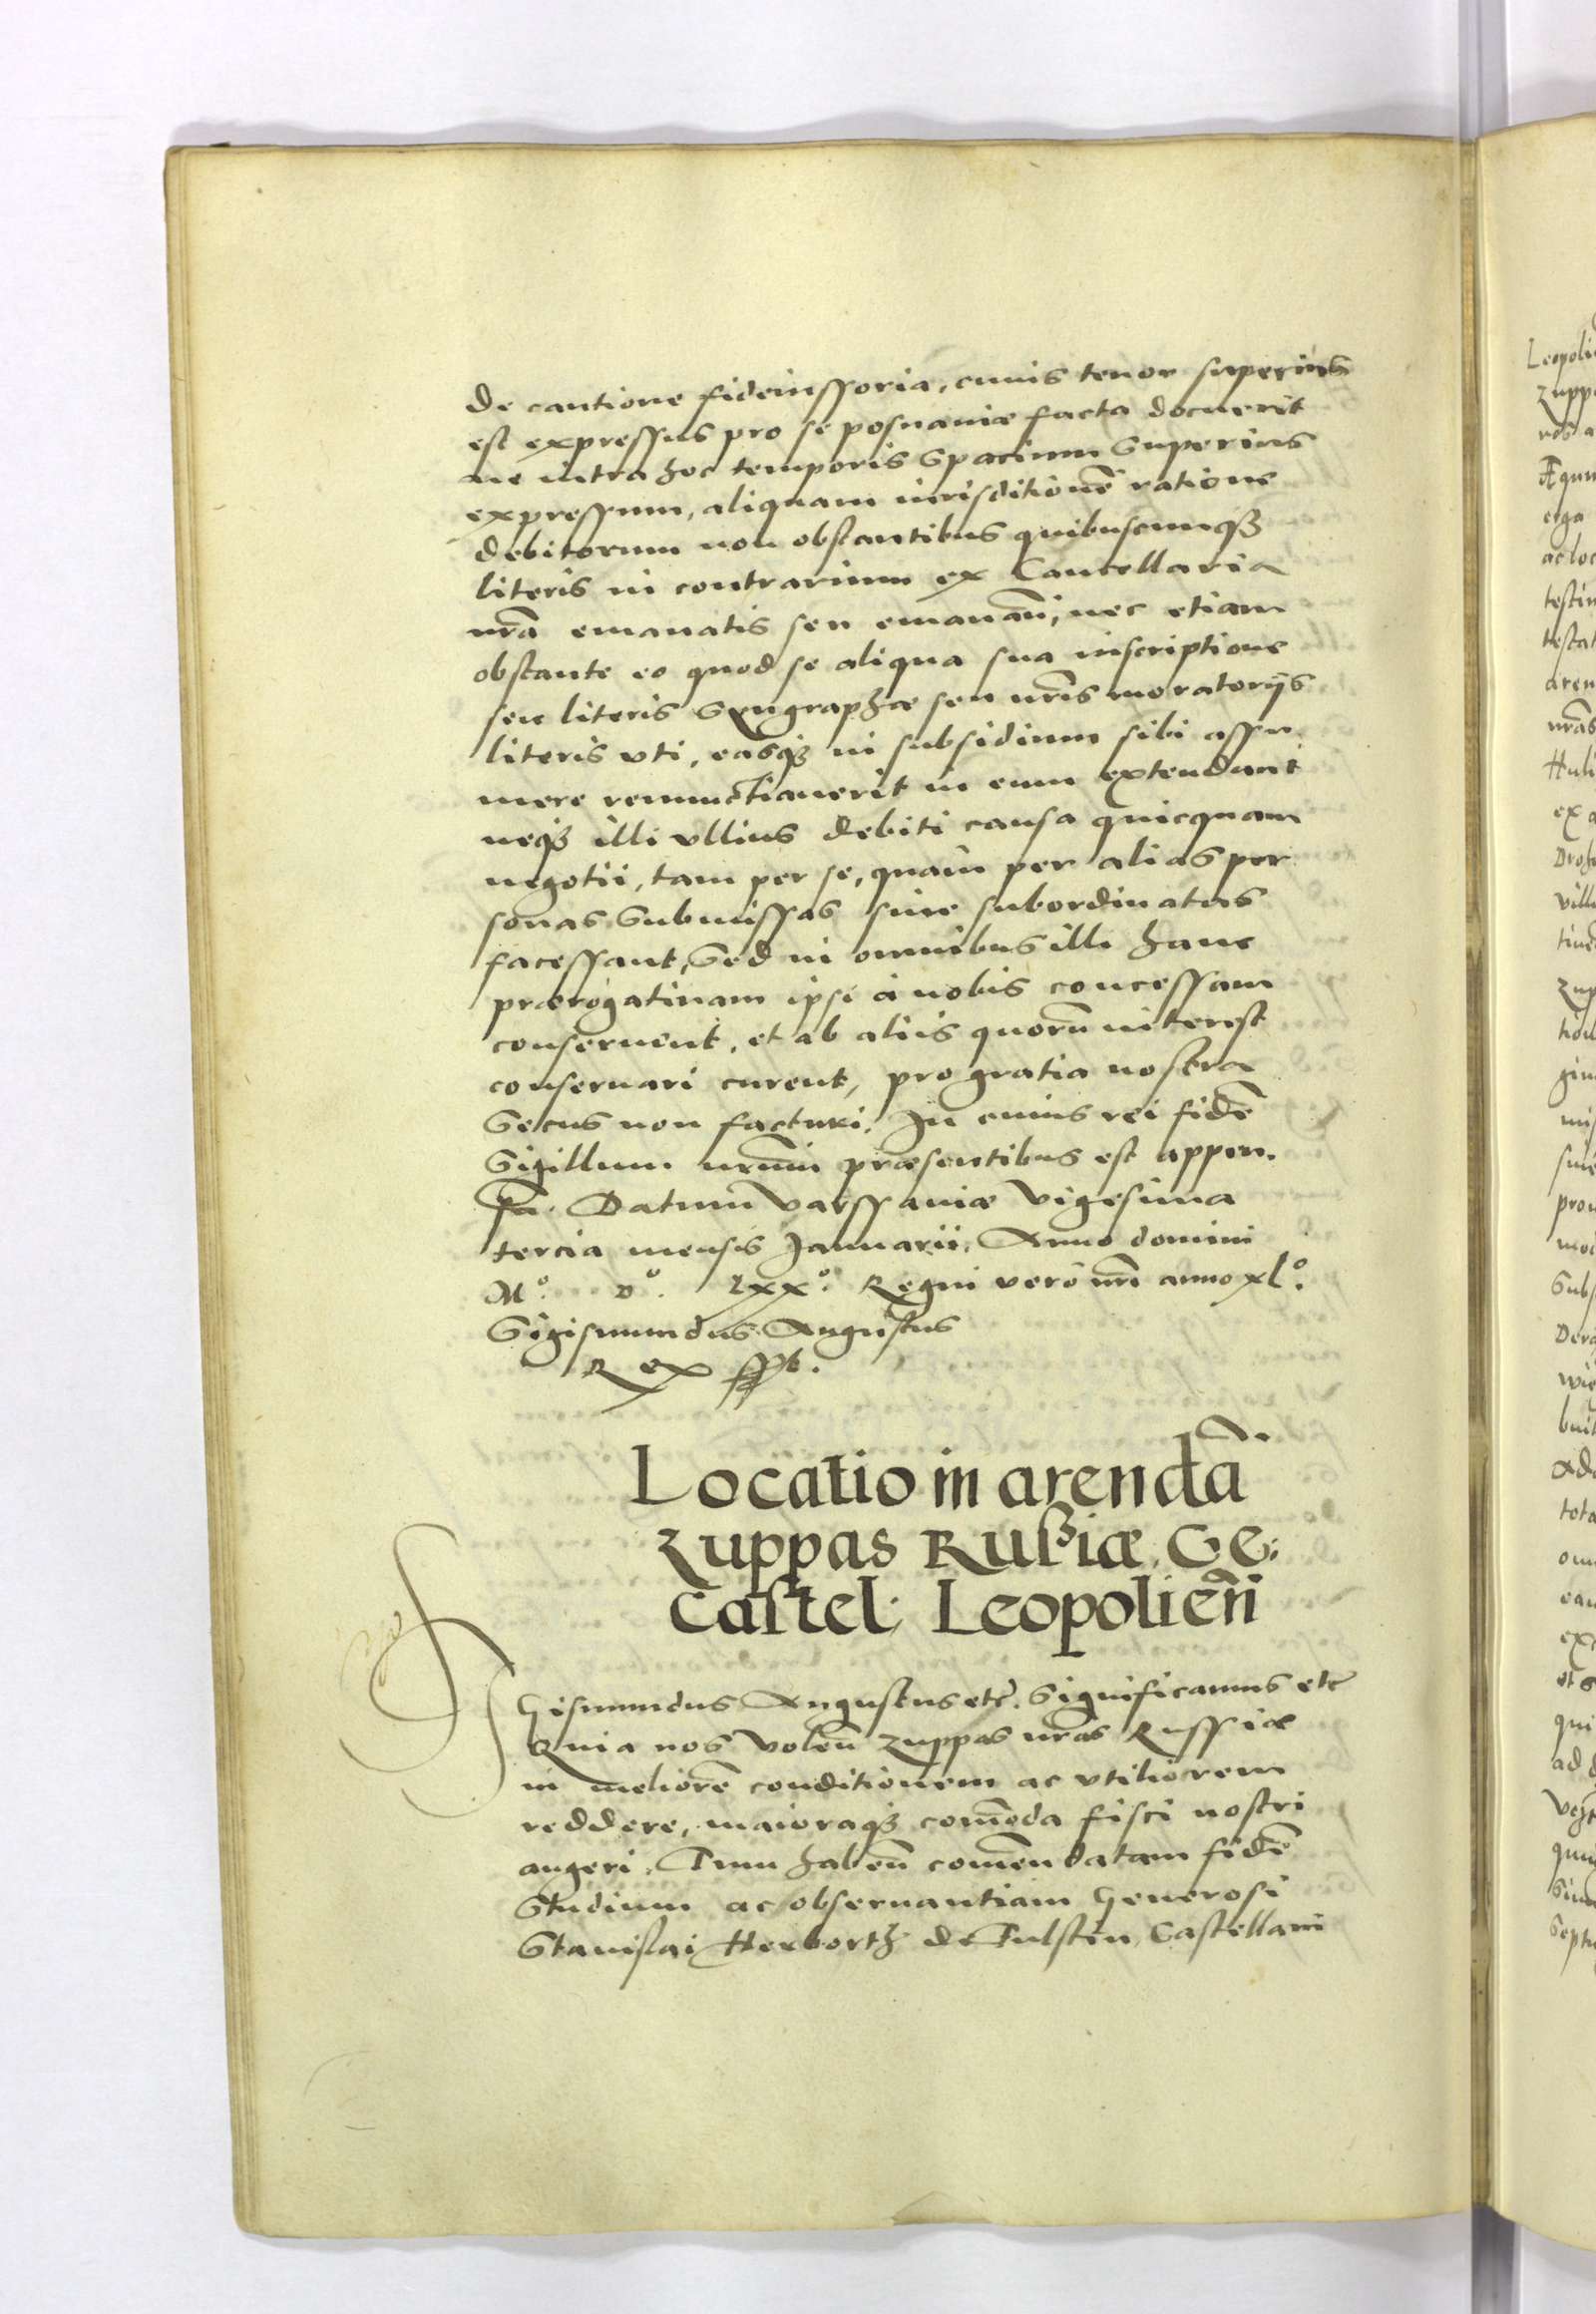 de cautione fideiussoria, cuius tenor superius
est expressus pro se posnaniæ facta docuerit
ne intra hoc temporis spacium superius
expressum, aliquam iurisditionē ratione
debitorum non obstantibus quibuscunqȝ
literis in contrarium ex Cancellaria
nrā emanatis seu emanan̄, nec etiam
obstante eo quod se aliqua sua inscriptione
seu literis Syngraphæ seu nrīs moratorijs
literis vti, easqȝ in subsidium sibi assu
mere renunctiauerit in eum extendant
neqȝ illi vllius debiti causa quicquam
negotii, tam per se, quàm per alias per
sonas submissas siue subordinatas
facessant, Sed in omnibus illi hanc
prærogatiuam ipsi à nobis concessam
conseruent, et ab aliis quorū interest
conseruari curent, pro gratia nostra
secus non facturi. In cuius rei fidē
Sigillum nrum̄ præsentibus est appen.
sū. Datum Varssauiæ Vigesima
tercia mensis Januarii, Anno domini
Mº. Dº. lxxº. Regni verò nrī anno xlº.
Sigismundus Augustus
Rex sspt.
Locatio in arendā
Zuppas Rußiæ. Ge:
Castel: Leopolien̄
Sigismundus Augustus etc̄. Significamus etc
Quia nos volen̄ Zuppas nrās Russiæ
in meliorē conditionem ac vtiliorem
reddere, maioraqȝ com̄oda fisci nostri
augeri. Tum haben̄ com̄endatam fidē
Studium ac obseruantiam Generosi
Stanislai Herborth de Fulstin, Castellani
Leopoli